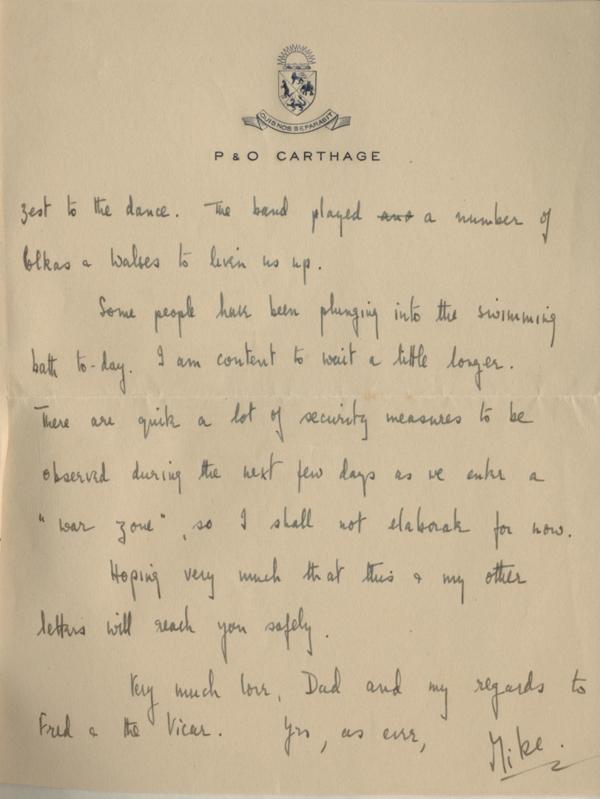 QUIS NOS SEPARABIT
P & O CARTHAGE
zest to the dance. The band played and a number of
Polkas & Walses to liven us up.
Some people have been plunging into the swimming
bath to-day. I am content to wait a little longer.
There are quite a lot of security measures to be
observed during the next few days as we enter a
"war zone", so I shall not elaborate for now.
Hoping very much that this & my other
letters will reach you safely.
Very much love, Dad and my regards to
Fred & the Vicar. Yrs, as ever,
Mike.